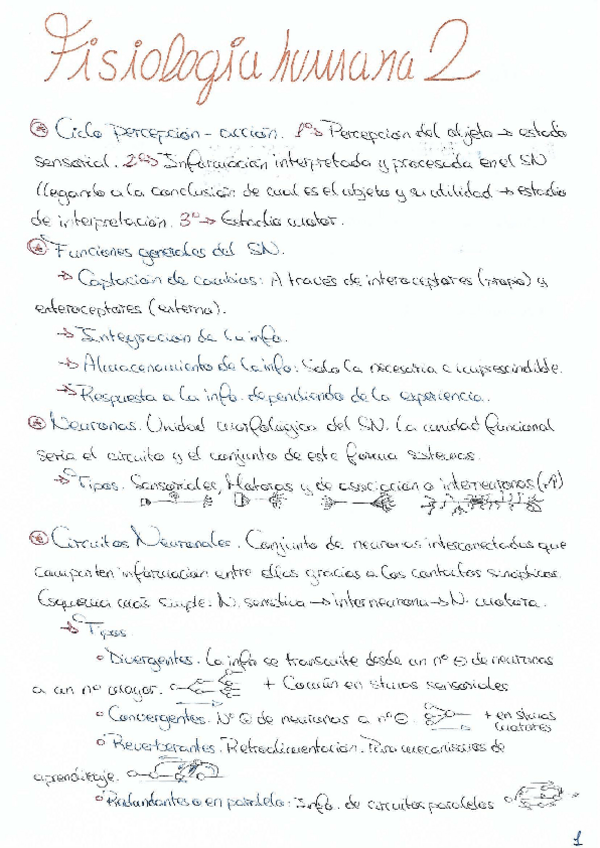 Fisiología humana 2
Ciclo percepción - acción. 1º → Percepción del objeto → estadio
sensorial. 2º → Información interpretada y procesada en el SN
llegando a la conclusión de cual es el objeto y su utilidad → estadio
de interpretación. 3º → Estadio motor.
Funciones generales del SN.
→ Captación de cambios: A través de interoceptores (propio) y
exteroceptores (externa).
→ Integración de la info.
→ Almacenamiento de la info: Solo la necesaria e imprescindible.
→ Respuesta a la info. dependiendo de la experiencia.
Neuronas. Unidad morfológica del SN. La unidad funcional
sería el circuito y el conjunto de este forma sistemas.
→ Tipos. Sensoriales, Motoras y de asociación o interneuronas
Circuitos Neuronales. Conjunto de neuronas interconectadas que
comparten información entre ellas gracias a los contactos sinápticos.
Esquema más simple: N. sensitiva → interneurona → N. motora.
→ Tipos.
Divergentes. La info se transmite desde un nº ⊖ de neuronas
a un nº mayor. + Común en stmas sensoriales
Convergentes. Nº ⊕ de neuronas a nº ⊖. + en stmas
motores
Reverberantes. Retroalimentación. Para mecanismos de
aprendizaje.
Redundantes o en paralelo: Info. de circuitos paralelos
1